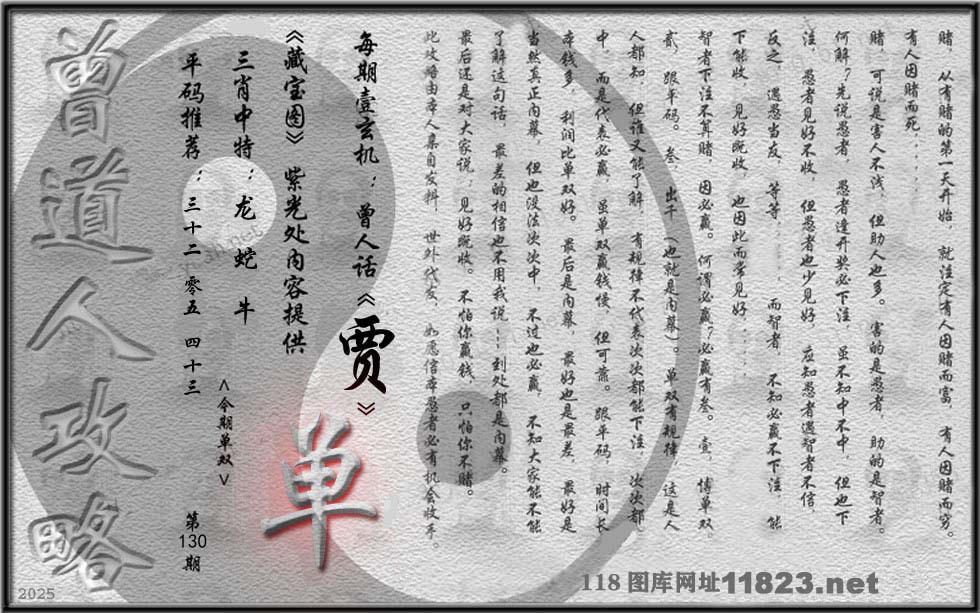 赌，从有赌的第一天开始，就注定有人因赌而富，有人因赌而穷。
有人因赌而死......
赌，可说是害人不浅，但助人也多。害的是愚者，助的是智者。
何解？先说愚者，愚者逢开奖必下注，虽不知中不中，但也下
注，愚者见好不收，但愚者也少见好，应知愚者遇智者不信，
反之，遇愁当友，等等......而智者，不知必赢不下注，能
下能收，见好既收，也因此而常见好......
智者下注不算赌，因必赢。何谓必赢？必赢有叁。壹，博单双，
贰，跟平码。叁，出千（也就是内幕）。单双有规律，这是人
人都知，但谁又能了解，有规律不代表次次都能下注，次次都
中，而是代表必赢，虽单双赢钱慢，但可靠。跟平码，时间长
本钱多，利润比单双好。最后是内幕，最好也是最差，最好是
当然真正内幕，但也没法次次中，不过也必赢，不知大家能不能
了解这句话，最差的相信也不用我说......到处都是内幕。
最后还是对大家说：见好既收。不怕你赢钱，只怕你不赌。
此攻略由本人集自发料，世外代友，如愿信本愚者必有机会收手。
每期壹玄机：曾人话《贾》
《藏宝图》紫光处内容提供
三肖中特：龙 蛇 牛
平码推荐：三十二 零五 四十三
<今期单双>
单
第130期
曾道人攻略
118图库网址11823.net
2025